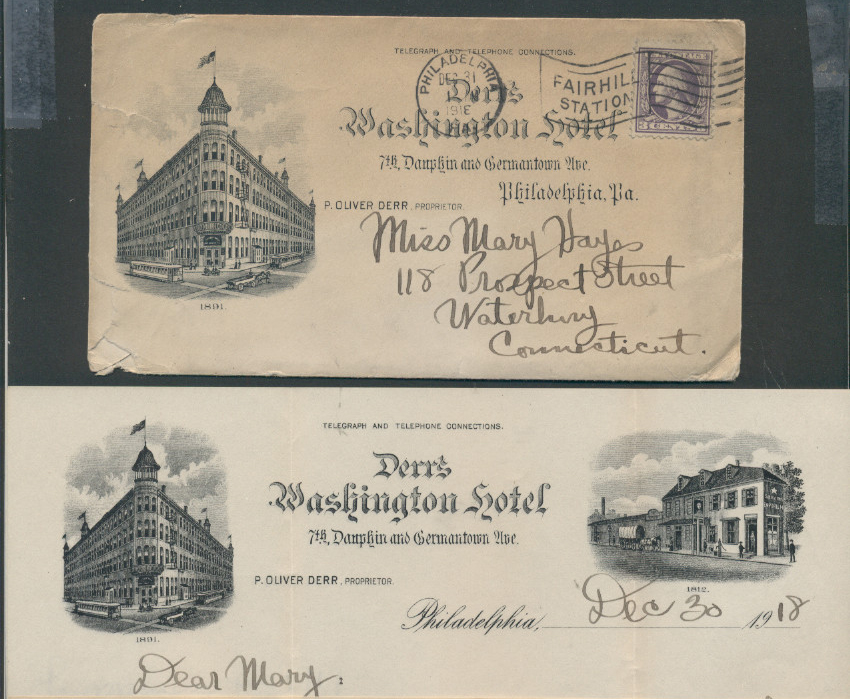 TELEGRAPH AND TELEPHONE CONNECTIONS.
PHILADELPHIA
DEC 31
1918
FAIRHILL
STATION
Derr's
Washington Hotel
7th, Dauphin and Germantown Ave.
Philadelphia, Pa.
P. OLIVER DERR, PROPRIETOR.
1891.
Miss Mary Hayes
118 Prospect Street
Waterbury
Connecticut.
TELEGRAPH AND TELEPHONE CONNECTIONS.
Derr's
Washington Hotel
7th, Dauphin and Germantown Ave.
P. OLIVER DERR, PROPRIETOR.
1891.
1812.
Philadelphia, Dec 30 1918
Dear Mary: